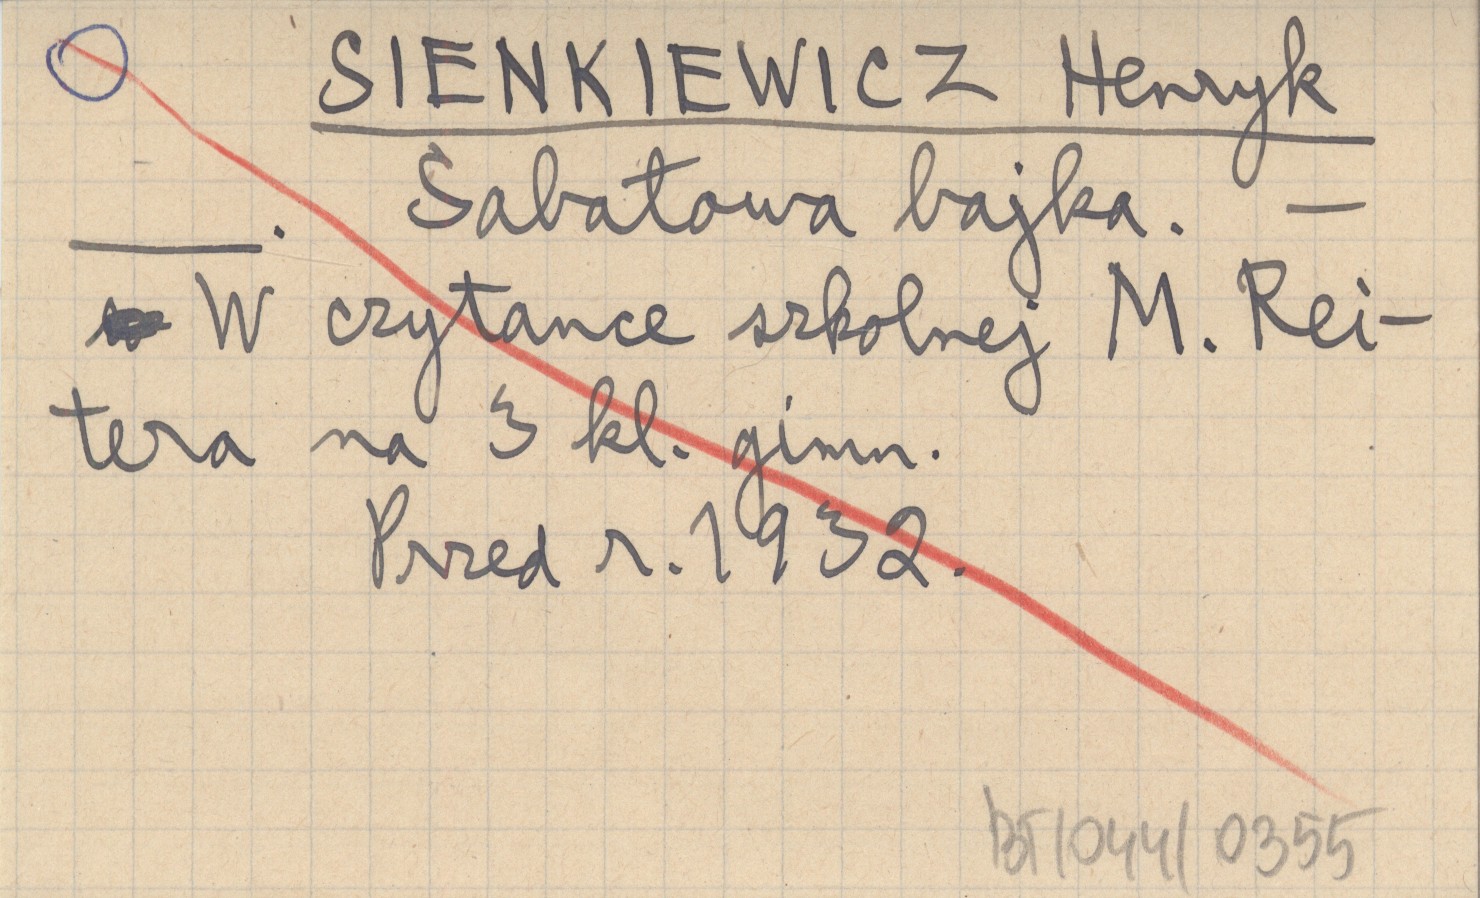 SIENKIEWICZ Henryk
Sabatowa bajka. —
W czytance szkolnej M. Rei-
tera na 3 kl. gimn.
Przed r. 1932.
BT/044/0355